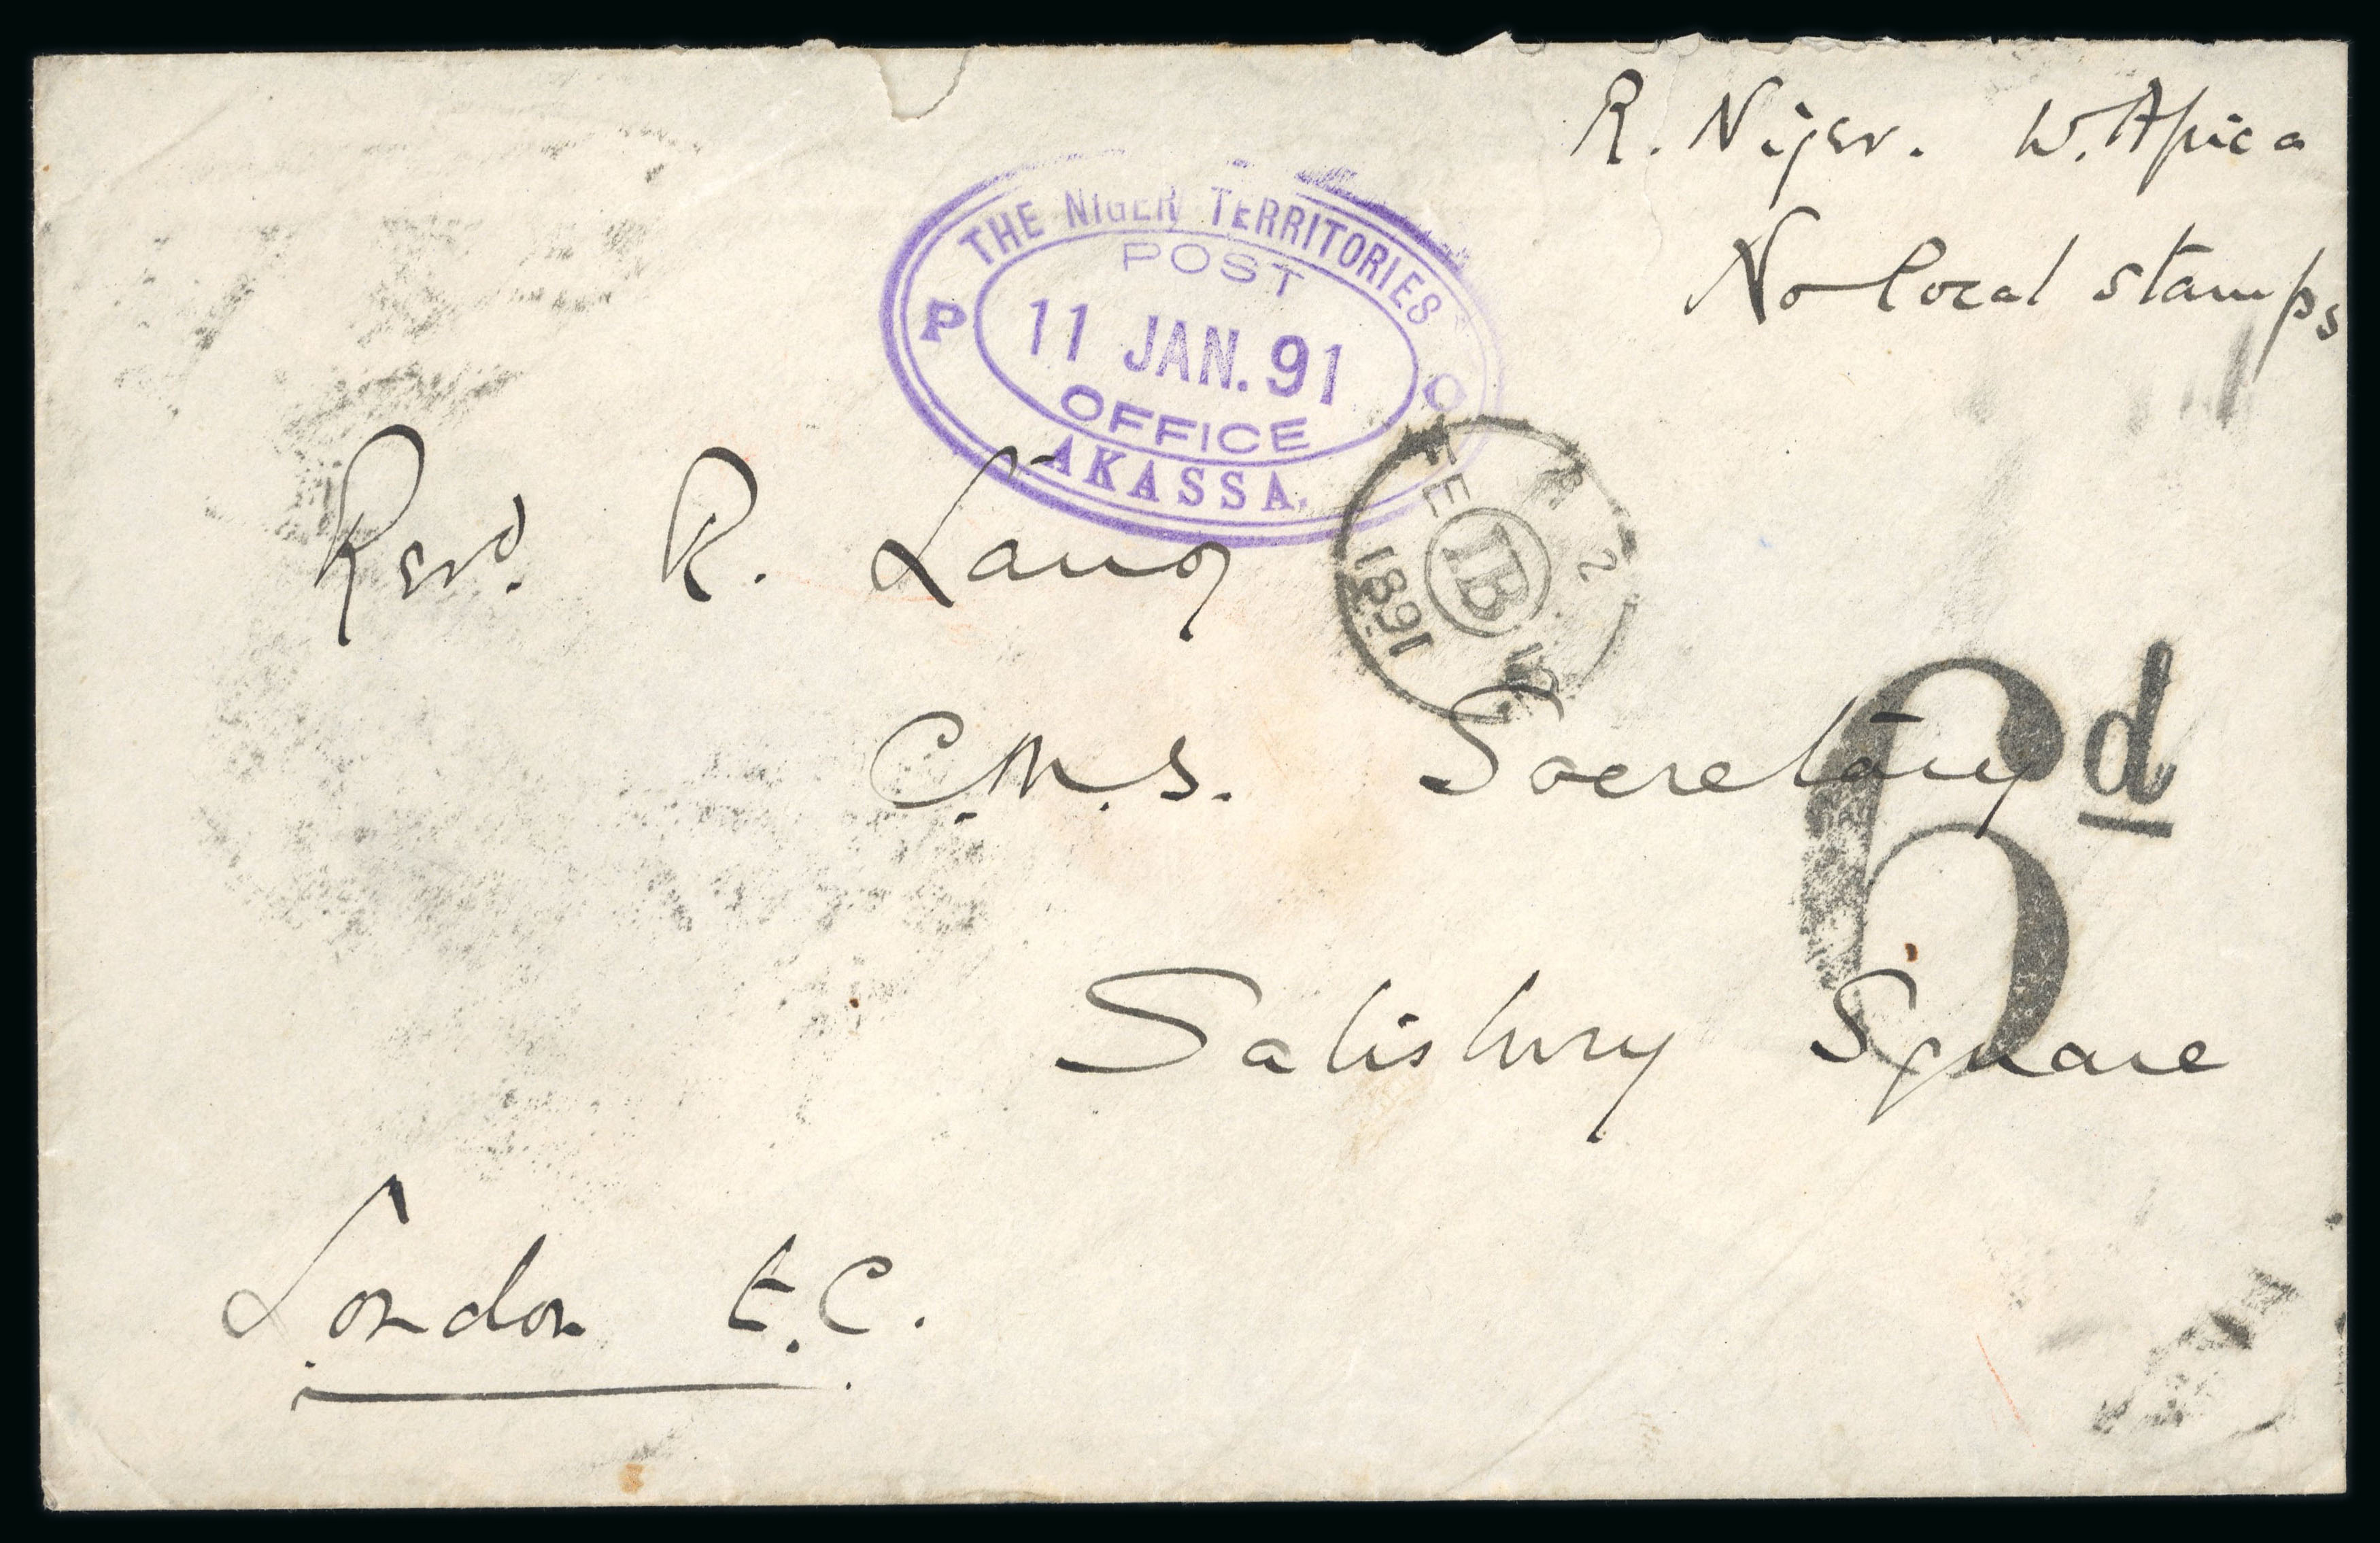 R. Niger. W. Africa
No local stamps
THE NIGER TERRITORIES
POST
P 11 JAN. 91 O
OFFICE
AKASSA.
Revd. R. Lang
FE 2
IB
1891
C.M.S. Secretary
6d
Salisbury Square
London E.C.